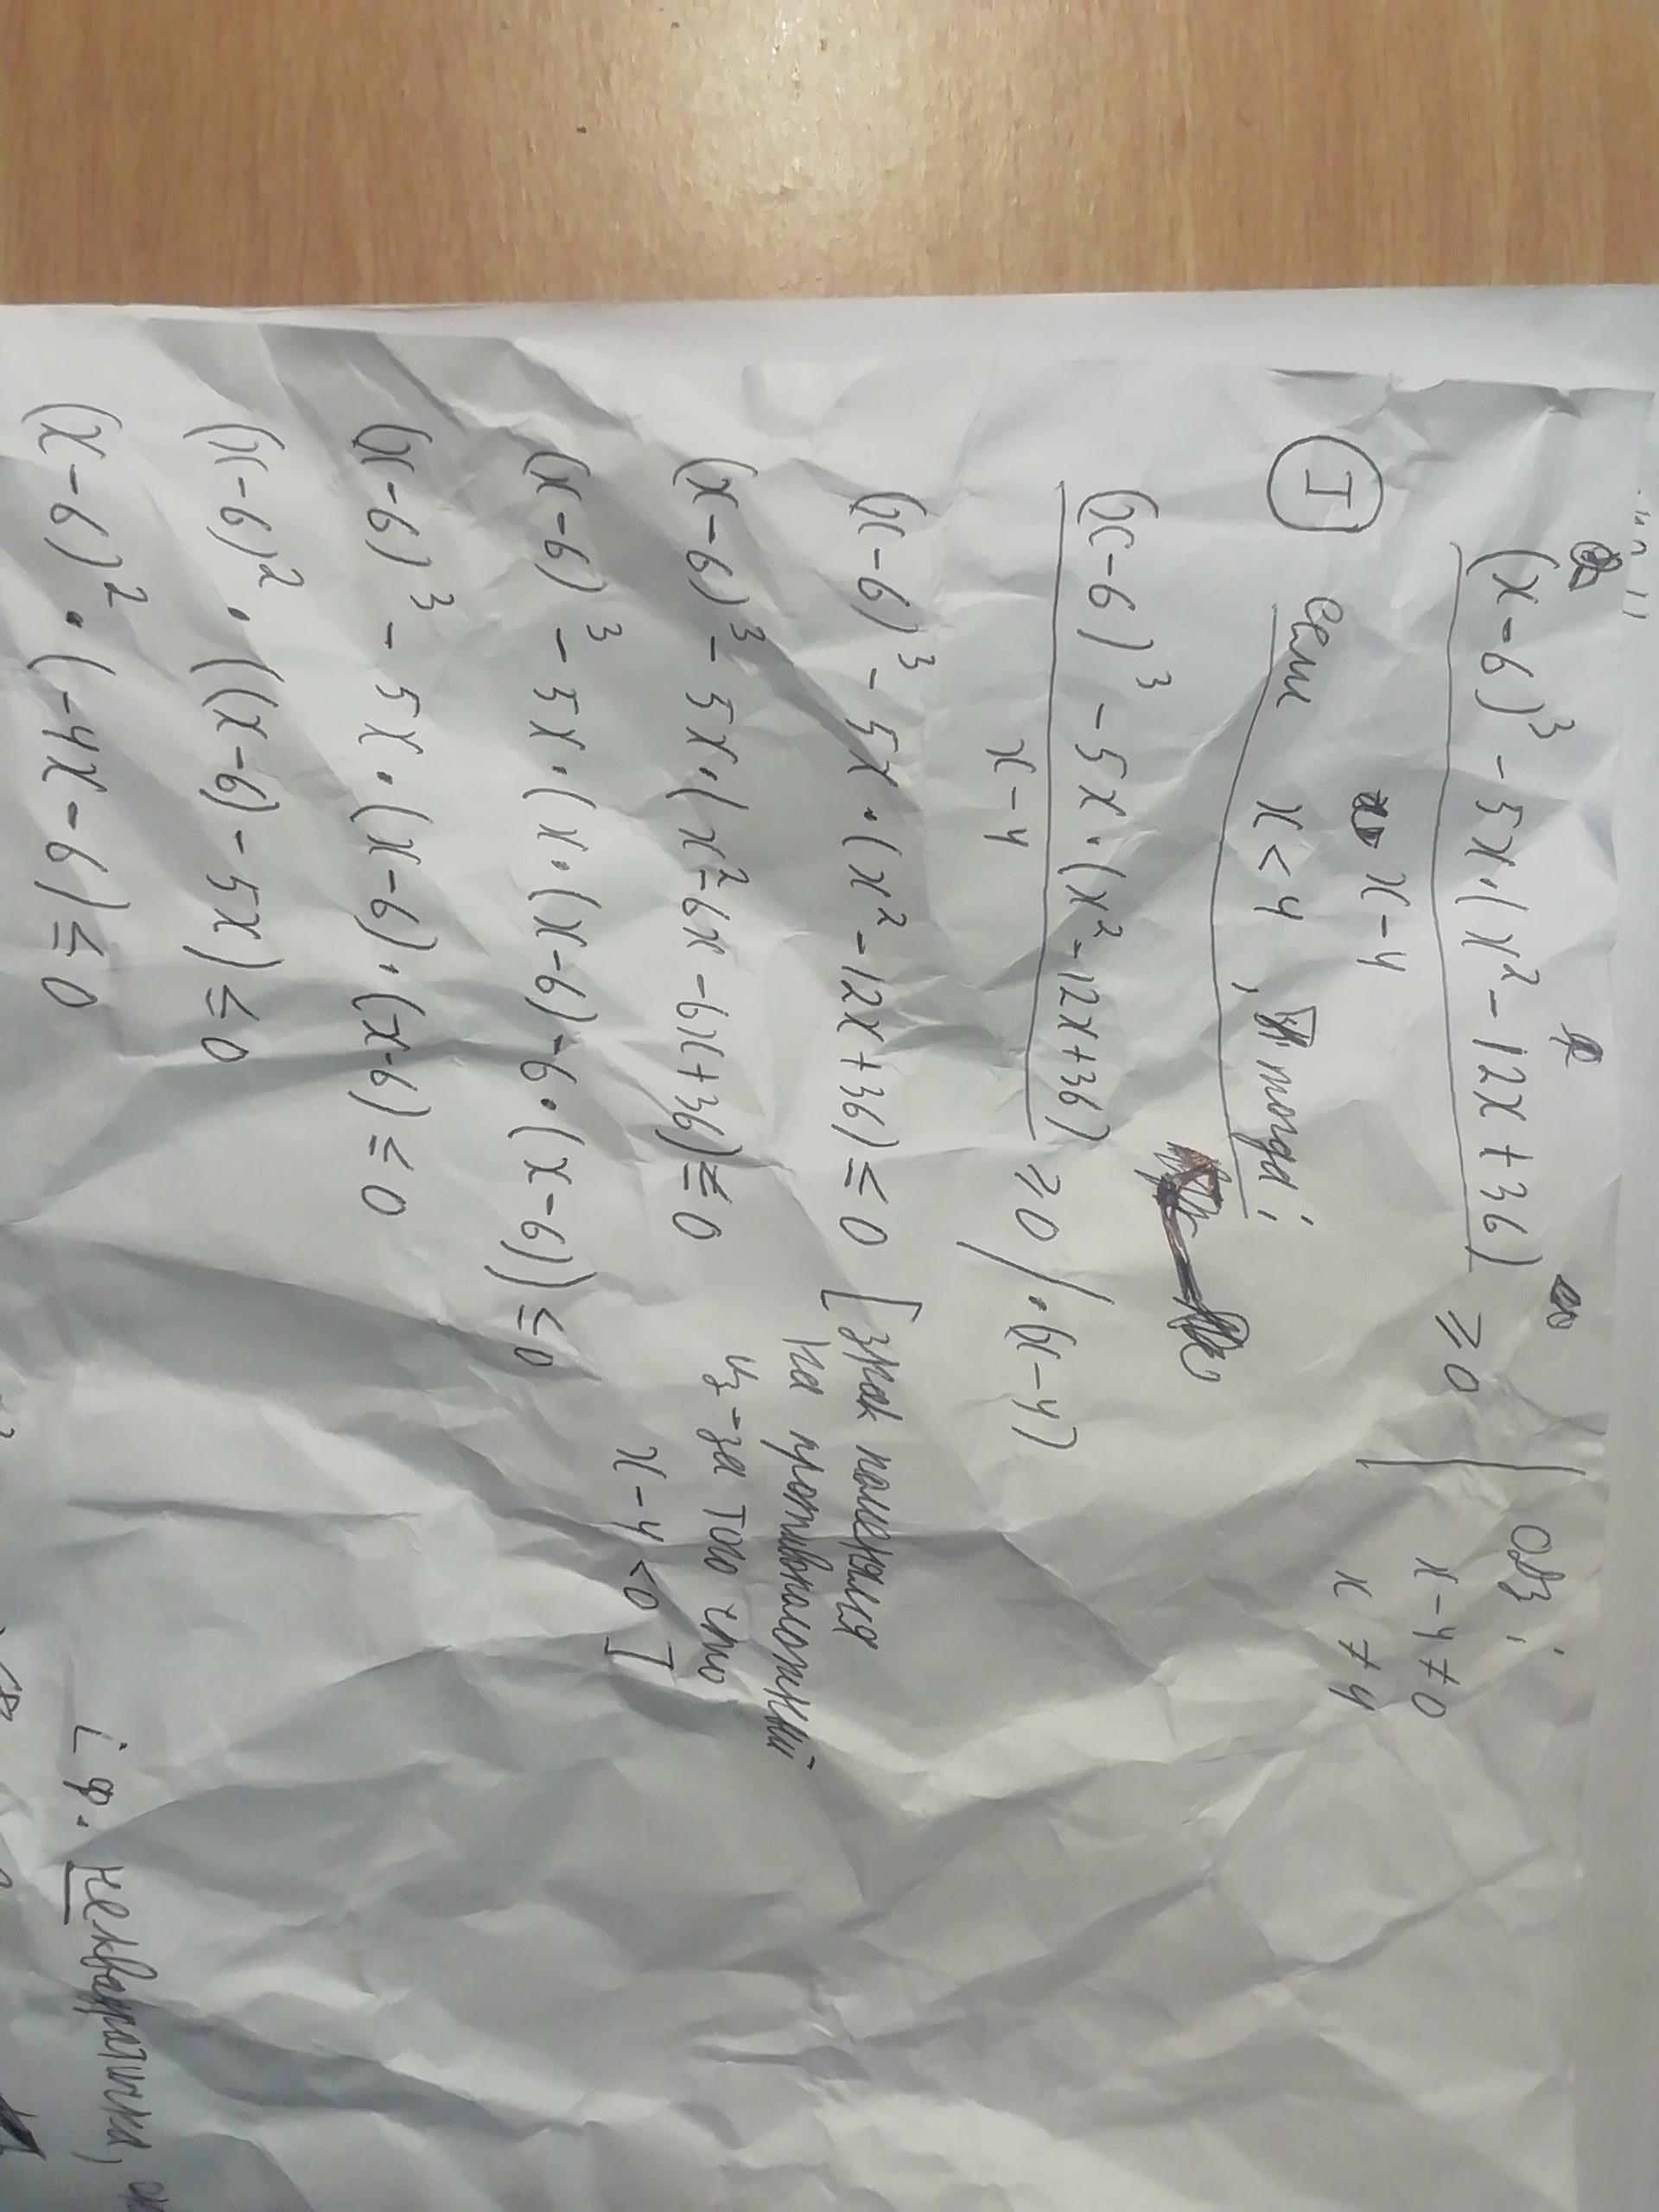 (x-6)³ - 5x·(x² - 12x + 36)
x - 4
≥ 0
ОДЗ:
x - 4 ≠ 0
x ≠ 4
I
Если x < 4, тогда:
(x-6)³ - 5x·(x² - 12x + 36)
x - 4
≥ 0 / ·(x-4)
(x-6)³ - 5x·(x² - 12x + 36) ≤ 0 [знак поменялся
на противоположный
из-за того что
x - 4 < 0]
(x-6)³ - 5x·(x² - 6x - 6x + 36) ≤ 0
(x-6)³ - 5x·(x·(x-6) - 6·(x-6)) ≤ 0
(x-6)³ - 5x·(x-6)·(x-6) ≤ 0
(x-6)²·((x-6) - 5x) ≤ 0
(x-6)²·(-4x - 6) ≤ 0